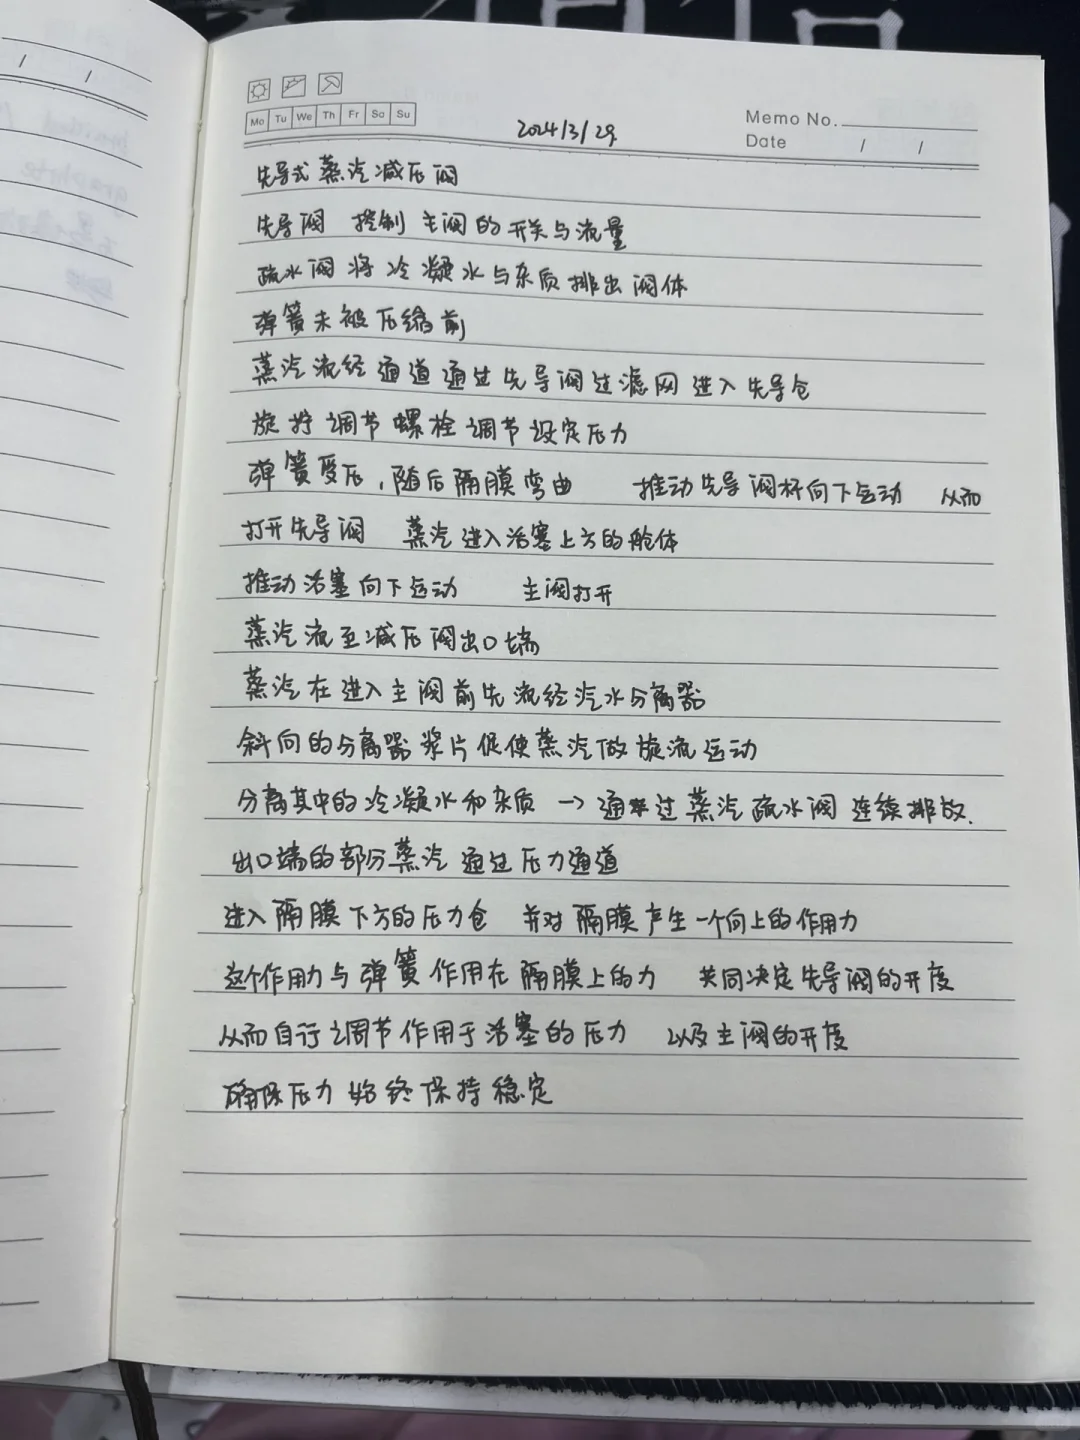 Mo Tu We Th Fr Sa Su
2024/3/29
Memo No.
Date / /
先导式蒸汽减压阀
先导阀 控制 主阀的开关与流量
疏水阀将冷凝水与杂质排出阀体
弹簧未被压缩前
蒸汽流经通道通过先导阀过滤网进入先导仓
旋拧调节螺栓调节设定压力
弹簧受压，随后隔膜弯曲 推动先导阀杆向下运动 从而
打开先导阀 蒸汽进入活塞上方的舱体
推动活塞向下运动 主阀打开
蒸汽流至减压阀出口端
蒸汽在进入主阀前先流经汽水分离器
斜向的分离器浆片促使蒸汽做旋流运动
分离其中的冷凝水和杂质 → 通过蒸汽疏水阀连续排放.
出口端的部分蒸汽通过压力通道
进入隔膜下方的压力仓 并对隔膜产生一个向上的作用力
这个作用力与弹簧作用在隔膜上的力 共同决定先导阀的开度
从而自行调节作用于活塞的压力 以及主阀的开度
确保压力始终保持稳定